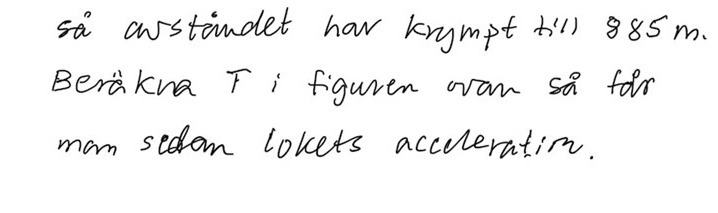 så avståndet har krympt till 885 m.
Beräkna T i figuren ovan så får
man sedan lokets acceleration.